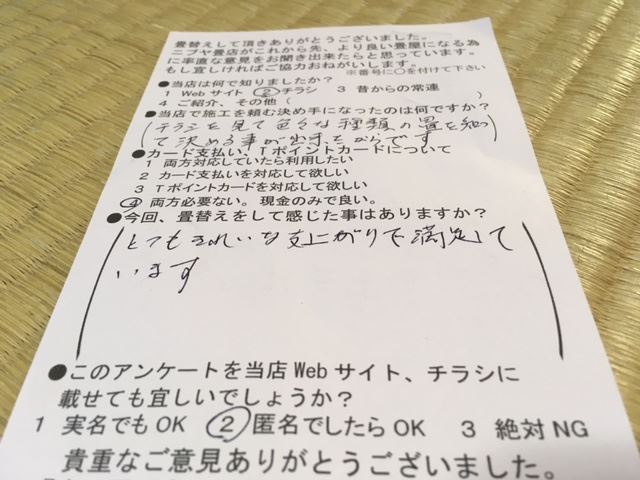 畳替えして頂きありがとうございました。
ニブヤ畳店がこれから先、より良い畳屋になる為
に率直な意見をお聞き出来たらと思っています。
もし宜しければご協力おねがいします。
※番号に○を付けて下さい
●当店は何で知りましたか?
1 Webサイト ②チラシ 3 昔からの常連
4 ご紹介、その他( )
●当店で施工を頼む決め手になったのは何ですか?
(チラシを見て色々な種類の畳を知っ
て決める事が出来たからです
●カード支払い、Tポイントカードについて
1 両方対応していたら利用したい
2 カード支払いを対応して欲しい
3 Tポイントカードを対応して欲しい
④ 両方必要ない。現金のみで良い。
●今回、畳替えをして感じた事はありますか?
(とてもきれいな仕上がりで満足して
います )
●このアンケートを当店Webサイト、チラシに
載せても宜しいでしょうか?
1 実名でもOK ②匿名でしたらOK 3 絶対NG
貴重なご意見ありがとうございました。